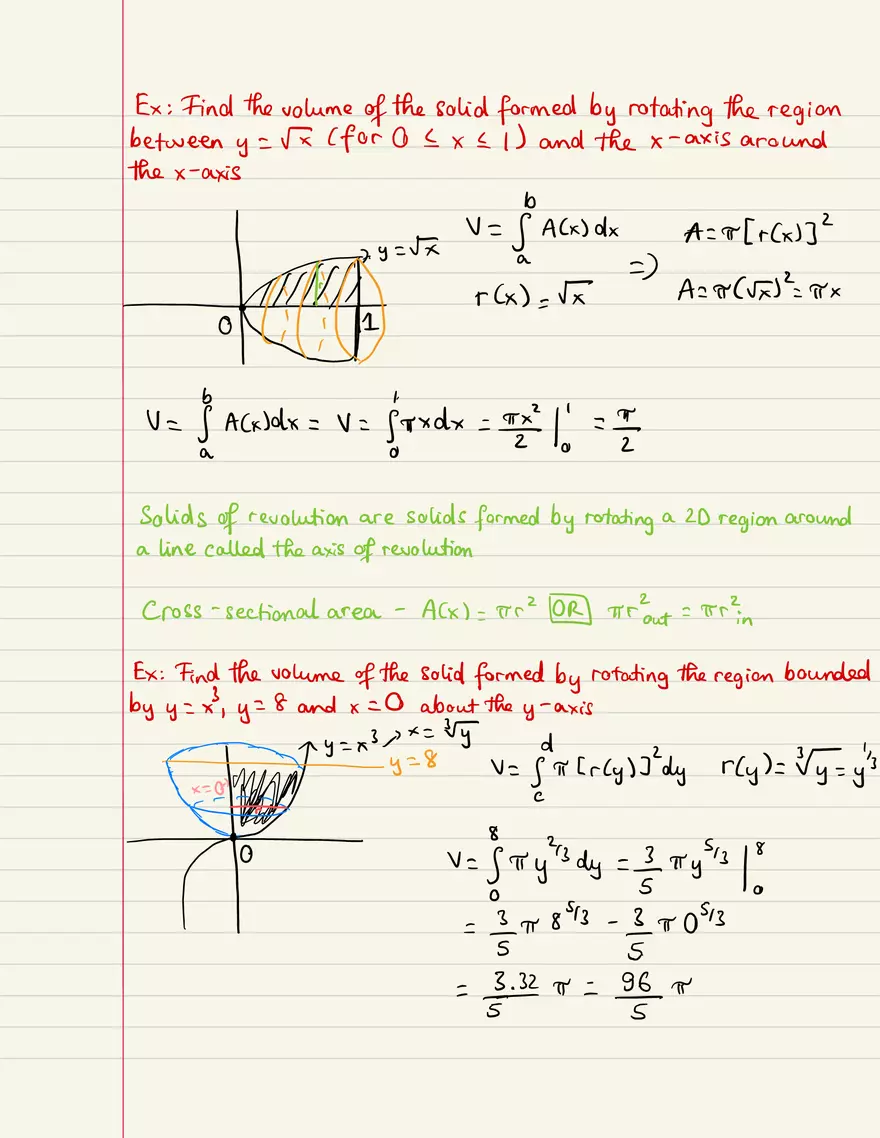 Ex: Find the volume of the solid formed by rotating the region
between y = √x (for 0 ≤ x ≤ 1) and the x-axis around
the x-axis
y = √x
0
1
V = ∫_a^b A(x) dx
r(x) = √x
=>
A = π[r(x)]²
A = π(√x)² = πx
V = ∫_a^b A(x)dx = V = ∫_0^1 πxdx = πx²/2 |_0^1 = π/2
Solids of revolution are solids formed by rotating a 2D region around
a line called the axis of revolution
Cross-sectional area - A(x) = πr² OR πr²out = πr²in
Ex: Find the volume of the solid formed by rotating the region bounded
by y = x³, y = 8 and x = 0 about the y-axis
y = x³ x = ∛y
y = 8
x = 0
0
V = ∫_c^d π[r(y)]² dy r(y) = ∛y = y^1/3
V = ∫_0^8 πy^2/3 dy = 3/5 πy^5/3 |_0^8
= 3/5 π 8^5/3 - 3/5 π 0^5/3
= 3.32/5 π = 96/5 π